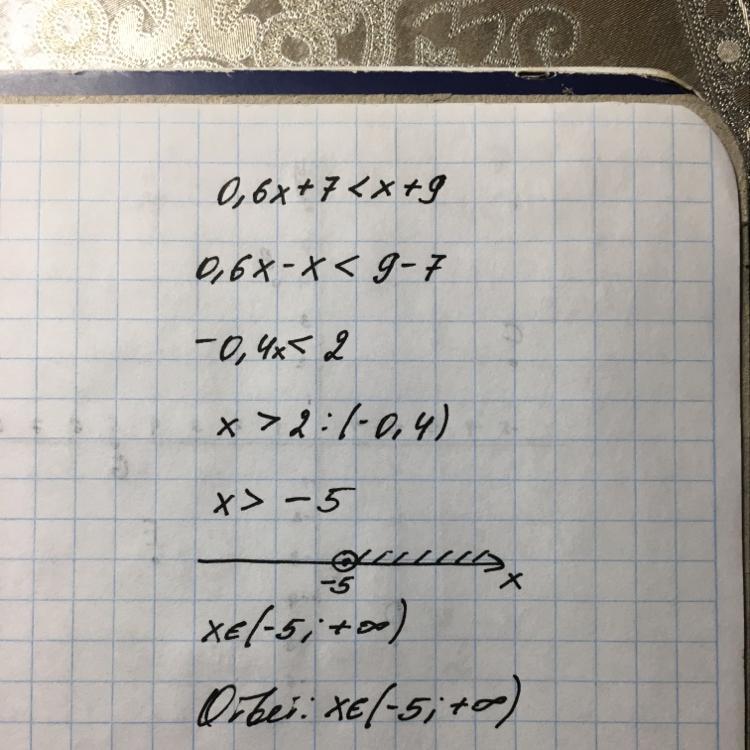 0,6x+7<x+9
0,6x-x< 9-7
-0,4x< 2
x >2:(-0,4)
x> -5
-5
x
x∈(-5;+∞)
Ответ: x∈(-5;+∞)